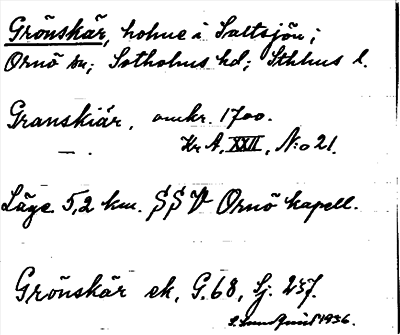 Grönskär, holme i Saltsjön i
Ornö sn; Sotholms hd; Sthlms l.
Granskiär, omkr. 1700.
— . Kr A, XXII, N:o 21.
Läge 5,2 km. SSV Ornö kapell.
Grönskär ek, G.68, Sj. 257.
S. Lundquist 1936.